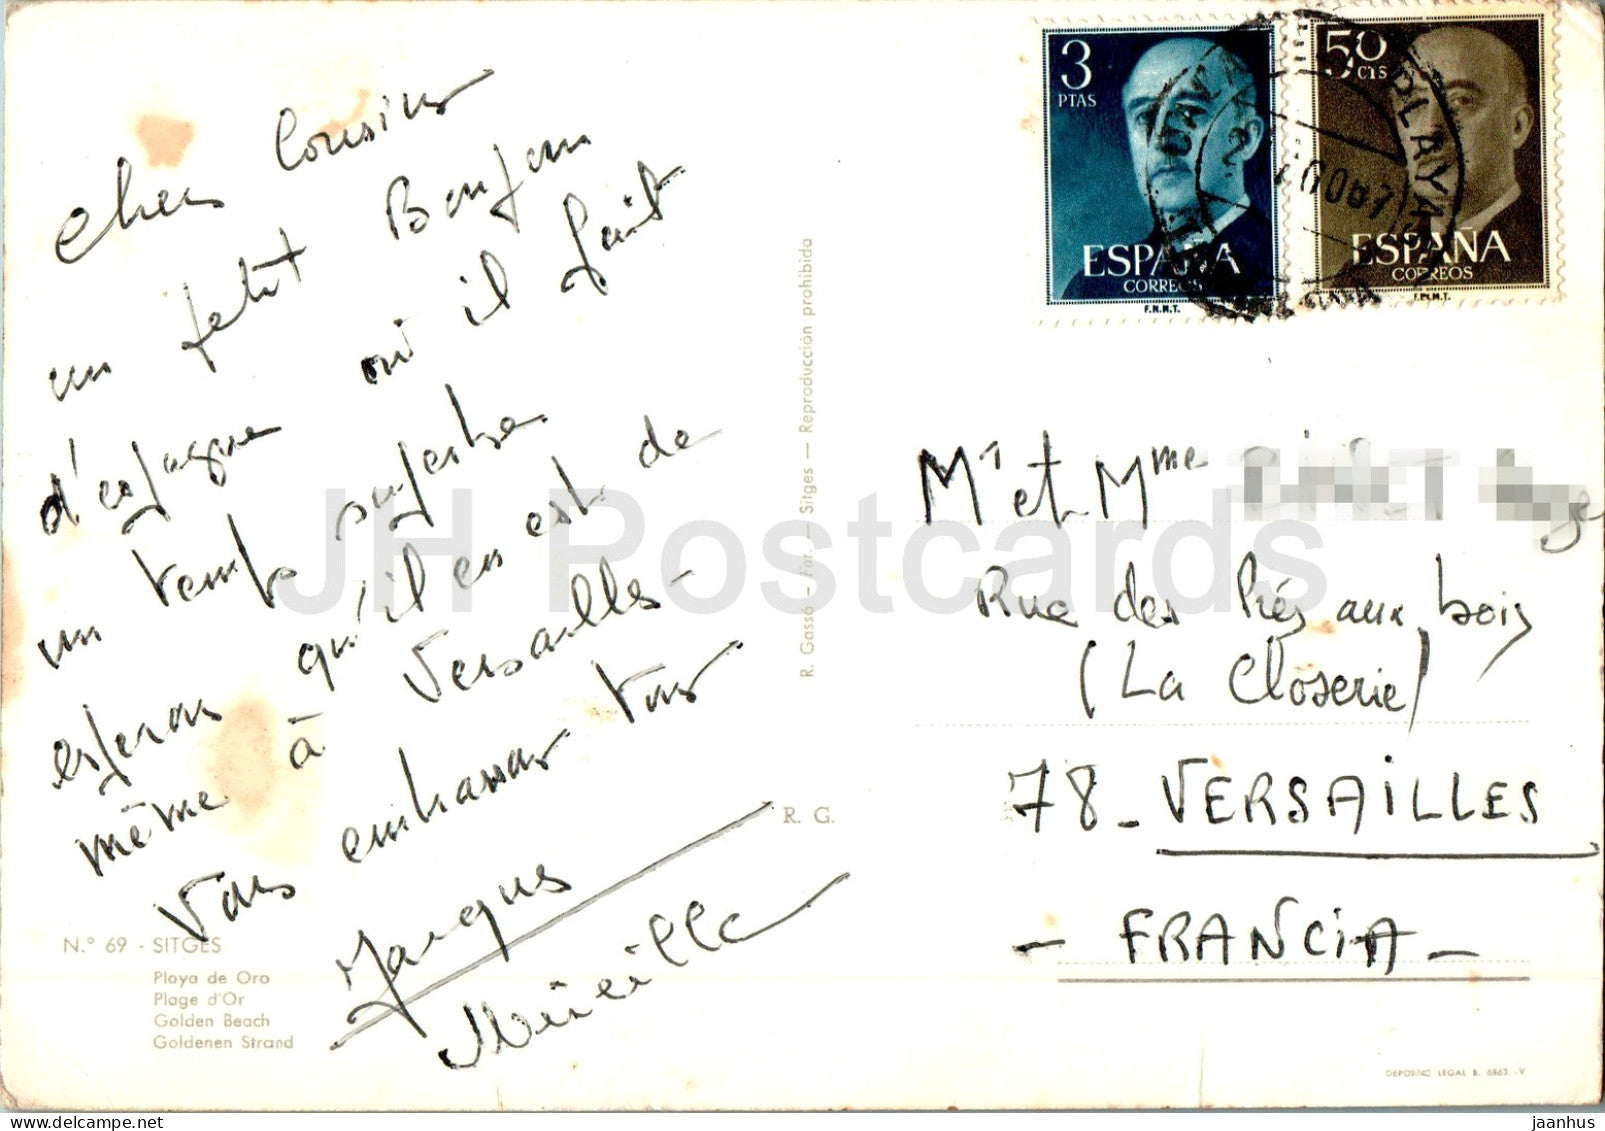 Chers Cousins
un petit Bonjour
d'espagne où il fait
un temps superbe
esperons qu'il en est de
même à Versailles -
Vous embrassons tous
Jacques
Mireille
N.º 69 - SITGES
Playa de Oro
Plage d'Or
Golden Beach
Goldenen Strand
R. Gassó - Fot. - Sitges - Reproducción prohibida
R. G.
3
PTAS
ESPAÑA
CORREOS
F.N.M.T.
50
CTS
ESPAÑA
CORREOS
F.N.M.T.
PLAYA
Mr et Mme
Rue des Prés aux bois
(La Closerie)
78 - VERSAILLES
- FRANCIA -
DEPOSITO LEGAL B. 6863 - V
JH Postcards
jaanhus